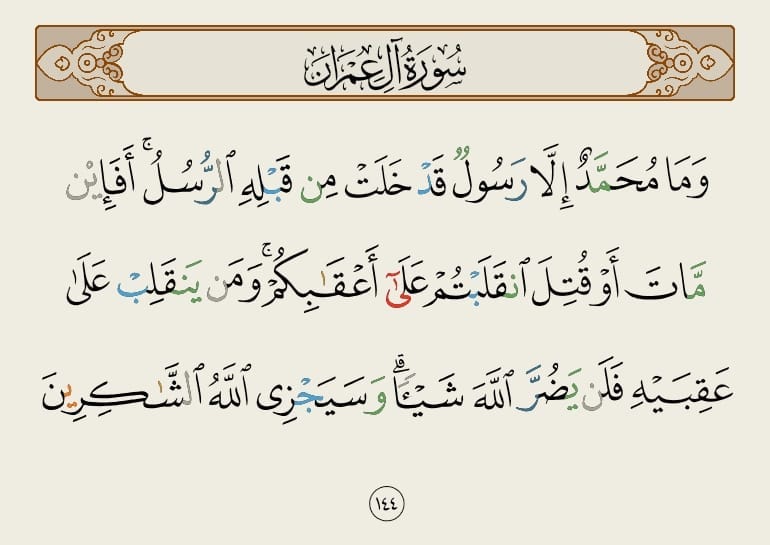 سُورَةُ آلِ عِمْرَانَ
وَمَا مُحَمَّدٌ إِلَّا رَسُولٌ قَدْ خَلَتْ مِن قَبْلِهِ ٱلرُّسُلُ ۚ أَفَإِيْن
مَّاتَ أَوْ قُتِلَ ٱنقَلَبْتُمْ عَلَىٰٓ أَعْقَـٰبِكُمْ ۚ وَمَن يَنقَلِبْ عَلَىٰ
عَقِبَيْهِ فَلَن يَضُرَّ ٱللَّهَ شَيْـًٔا ۗ وَسَيَجْزِى ٱللَّهُ ٱلشَّـٰكِرِينَ
١٤٤